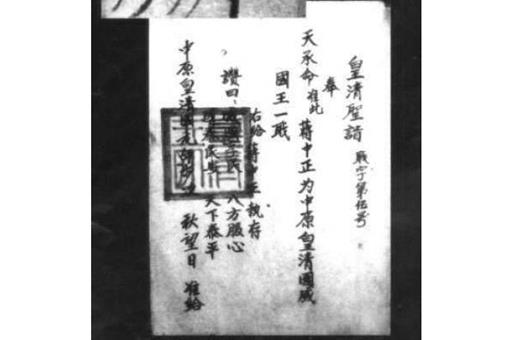 皇清聖誥 職字第伍号
奉
天承命准此 蔣中正为中原皇清國威
國王一職
右给蔣中正執存
讚曰、 八方服心
天下泰平
中原皇清 秋望日 准给